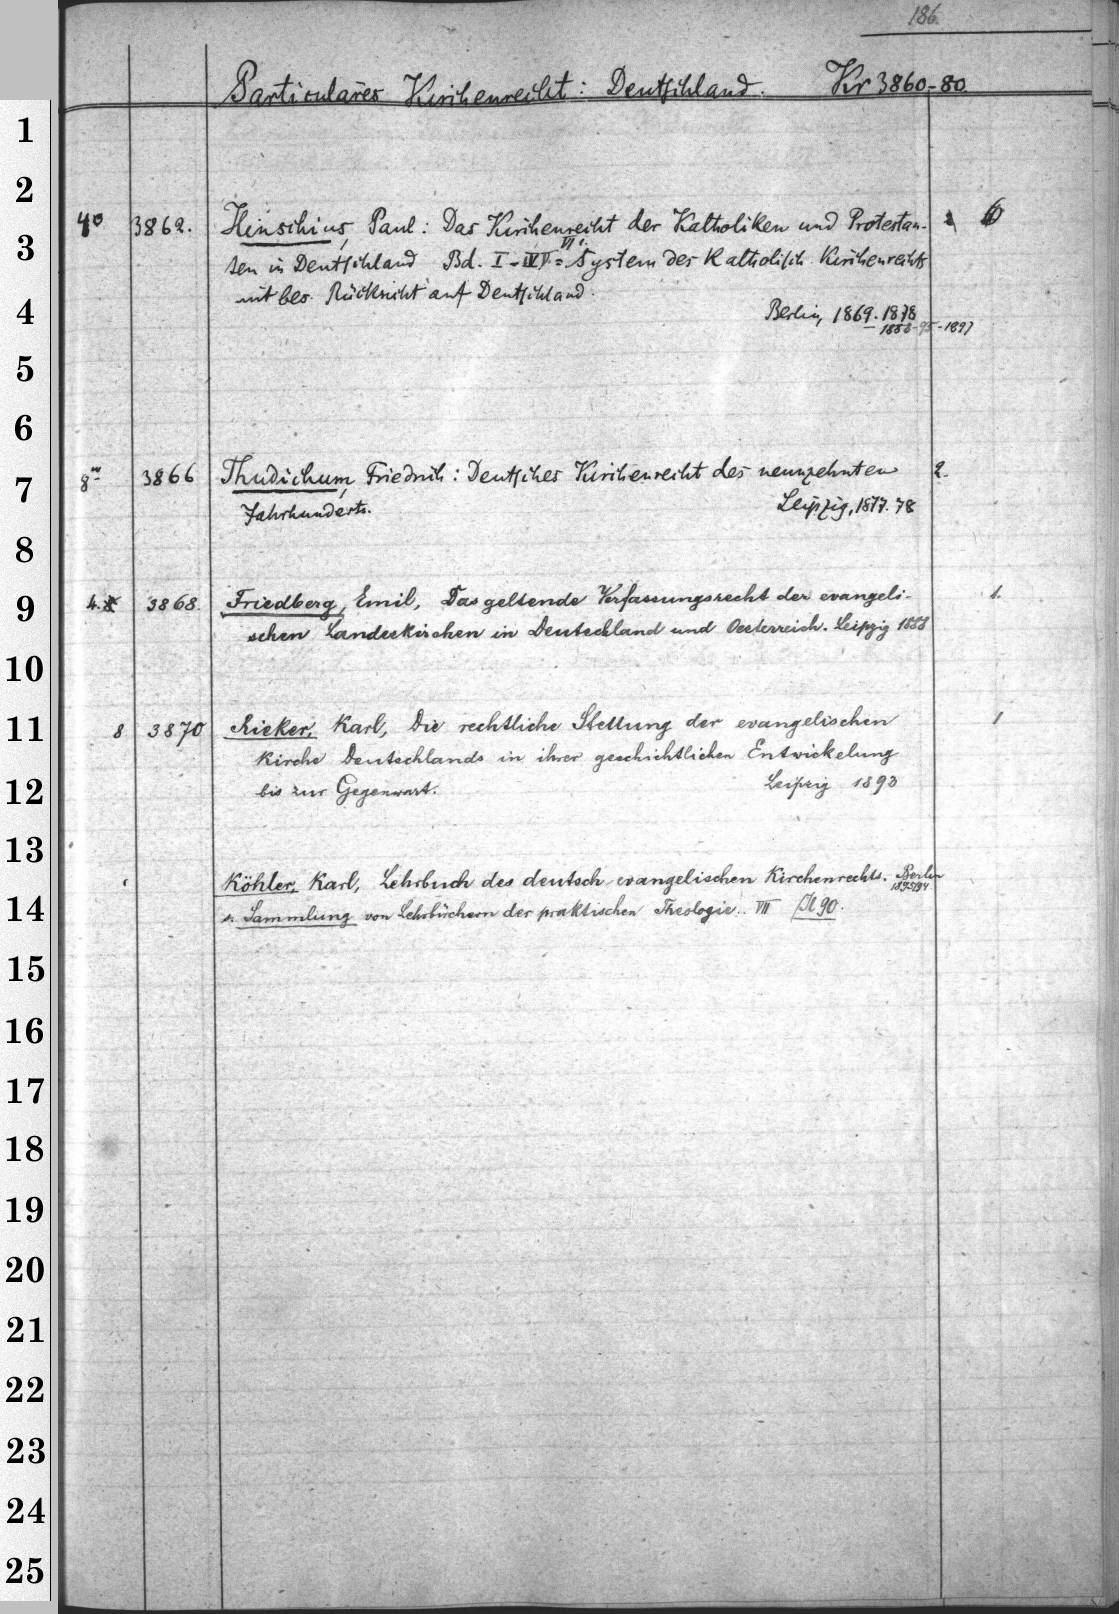 186.
Particulares Kirchenrecht: Deutschland. Kr 3860-80.
1
2
4o 3862. Hinschius, Paul: Das Kirchenrecht der Katholiken und Protestan- 6
3
ten in Deutschland Bd. I-IV = System des Katholisch. Kirchenrechts
VI 1.
mit bes. Rücksicht auf Deutschland.
4
Berlin, 1869. 1878
1888-95-1897
5
6
8º 3866 Thudichum, Friedrich: Deutsches Kirchenrecht des neunzehnten 2.
7
Jahrhunderts. Leipzig, 1877. 78
8
4. 3868. Friedberg, Emil, Das geltende Verfassungsrecht der evangeli- 1.
9
schen Landeskirchen in Deutschland und Oesterreich. Leipzig 1888
10
8 3870 Rieker, Karl, Die rechtliche Stellung der evangelischen 1
11
Kirche Deutschlands in ihrer geschichtlichen Entwickelung
12
bis zur Gegenwart. Leipzig 1893
13
Köhler, Karl, Lehrbuch des deutsch-evangelischen Kirchenrechts. Berlin
14
s. Sammlung von Lehrbüchern der praktischen Theologie. VII
15
16
17
18
19
20
21
22
23
24
25